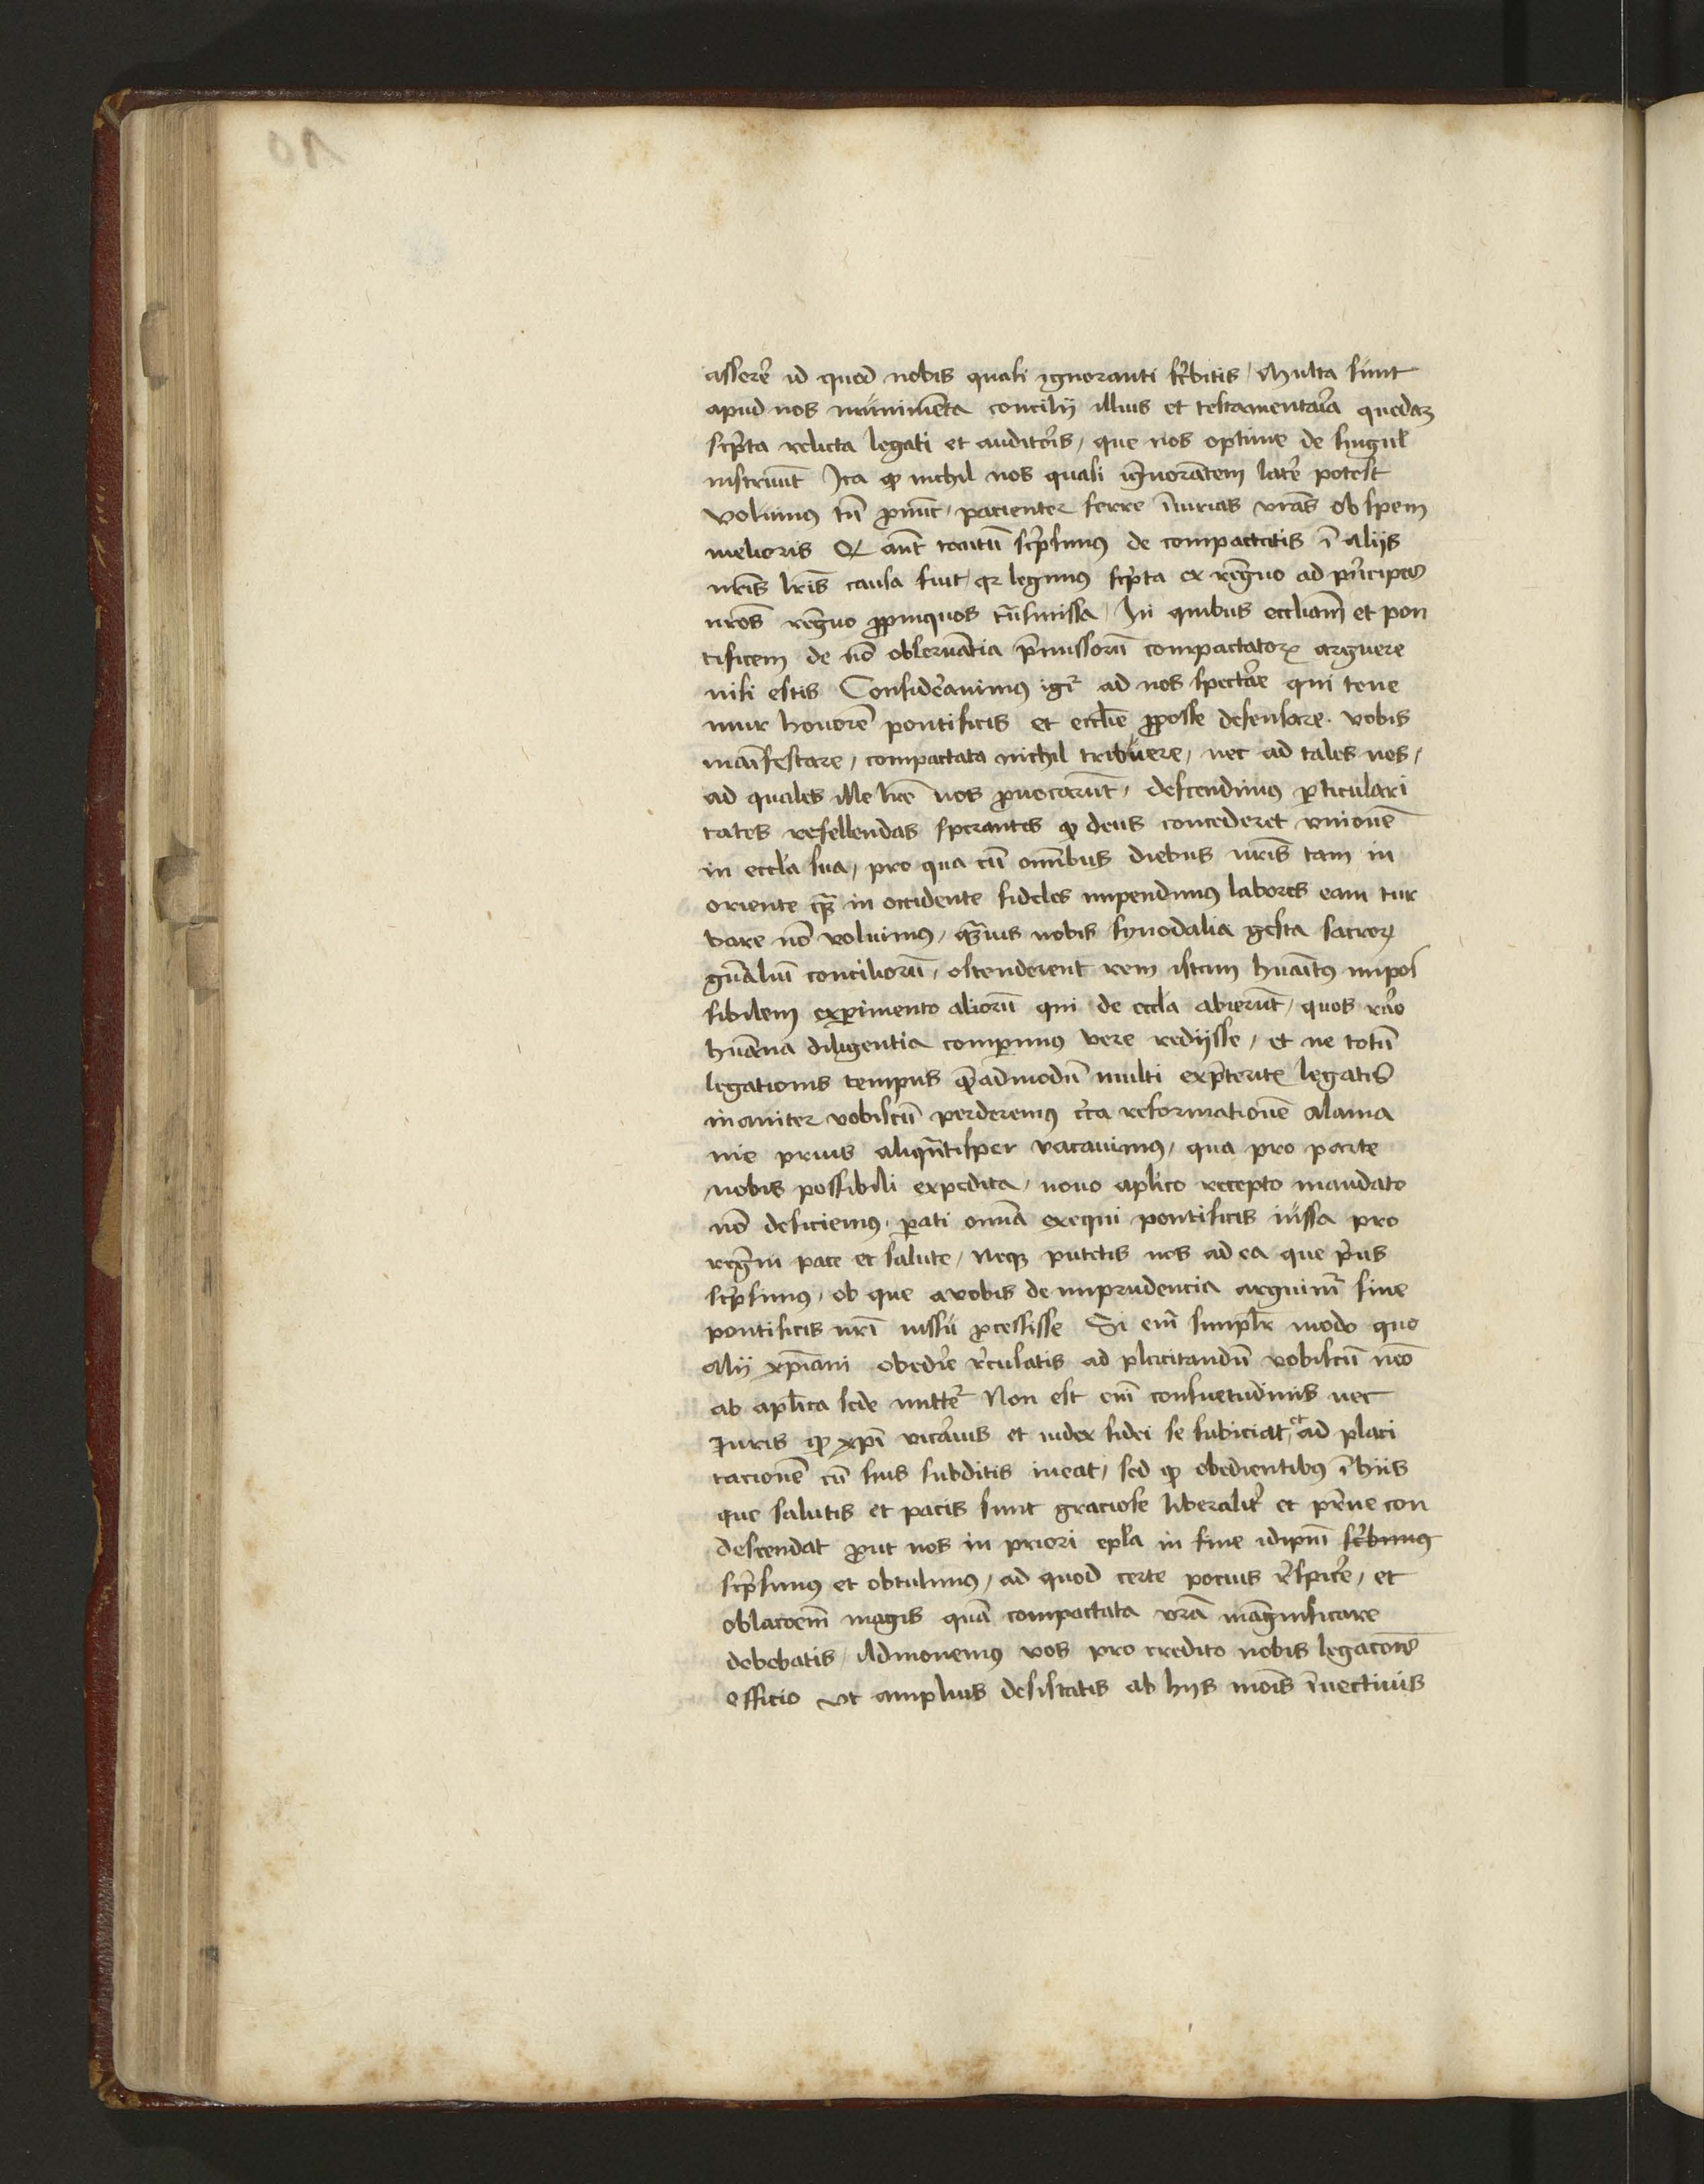 asserē id quod nobis quasi ignoranti sc̄bitis / Multa sunt
apud nos munimēta concilij illius et testamentar̄ia quedaꝫ
sc̄pta relicta legati et auditor̄is / que nos optime de singul̄
instruūt Ita ꝙ nichil nos quasi ign̄orātem latē potest
volumus tn̄ ꝓnūc / pacienter ferre īiurias vr̄as ob spem
melioris Qꝛ aūt tacitū sc̄psimus de compactatis ī alijs
nr̄is lr̄is causa fuit / qꝛ legimus sc̄pta ex regno ad pn̄cipes
nr̄os regno ꝓpinquos tn̄smissa / In quibus eccl̄iam et pon
tificem de nō obseruātia p̄missorū compactatoꝝ arguere
nisi estis Considēauimus igr̄ ad nos spectāe qui tene
mur honorē pontificis et eccl̄ie ꝓposse defensare · vobis
manīfestare / compactata nichil tribuere / nec ad tales nos /
ad quales ille lr̄e nos ꝓuocarūt / descendimus ꝑticulari
tates refellendas sperantes ꝙ deus concederet vnionē
in eccl̄a sua / pro qua cū omībus diebus nr̄is tam in
oriente qꝫ in occidente fideles impendimus labores eam tur
bare nō voluimus / qͣuis nobis synodalia gesta sacroꝝ
gn̄aliū conciliorū / ostenderent rem istam huāitus impos
sibilem exꝑimento aliorū qui de eccl̄a abierūt / quos rāo
huāna diligentia comꝑimus vere redijsse / et ne totū
legationis tempus q̄admodū multi exp̄teritꝭ legatis
inaniter vobiscū perderemus cīca reformationē alama
nie prius aliqn̄tisper vacauimus / qua pro parte
nobis possibili expedita / nouo apl̄ico recepto mandato
nō deficiemus · ꝑati omīa exequi pontificis iussa pro
regn̄i pace et salute / Neqꝫ putetis nos ad ea que p̄us
sc̄psimus / ob que a vobis de imprudencia arguimr̄ sine
pontificis nr̄i iussu ꝓcessisse Si eni͞ simpl̄r modo quo
alij xp̄iani obedīre rēculatis ad placitandū vobiscū nēo
ab apl̄ica sede mittet̄ Non est eni͞ consuetudinis nec
Iuris ꝙ xp̄i vicar̄ius et iudex fidei se subiciat / et ad placi
tacionē cū suis subditis ineat / sed ꝙ obedientibus ī hijs
que salutis et pacis sunt graciose liberalit̄ et pr̄ne con
descendat ꝓut nos in priori epl̄a in fine idip̄m sc̄bimus
sc̄psimus et obtulimus / ad quod certe pocius rēspicē / et
oblacōem magis quā compactata vr̄a magnīficare
debebatis / Admonemus vos pro credito nobis legacōnis
officio vt amplius desistatis ab hijs mōis īuectiuis